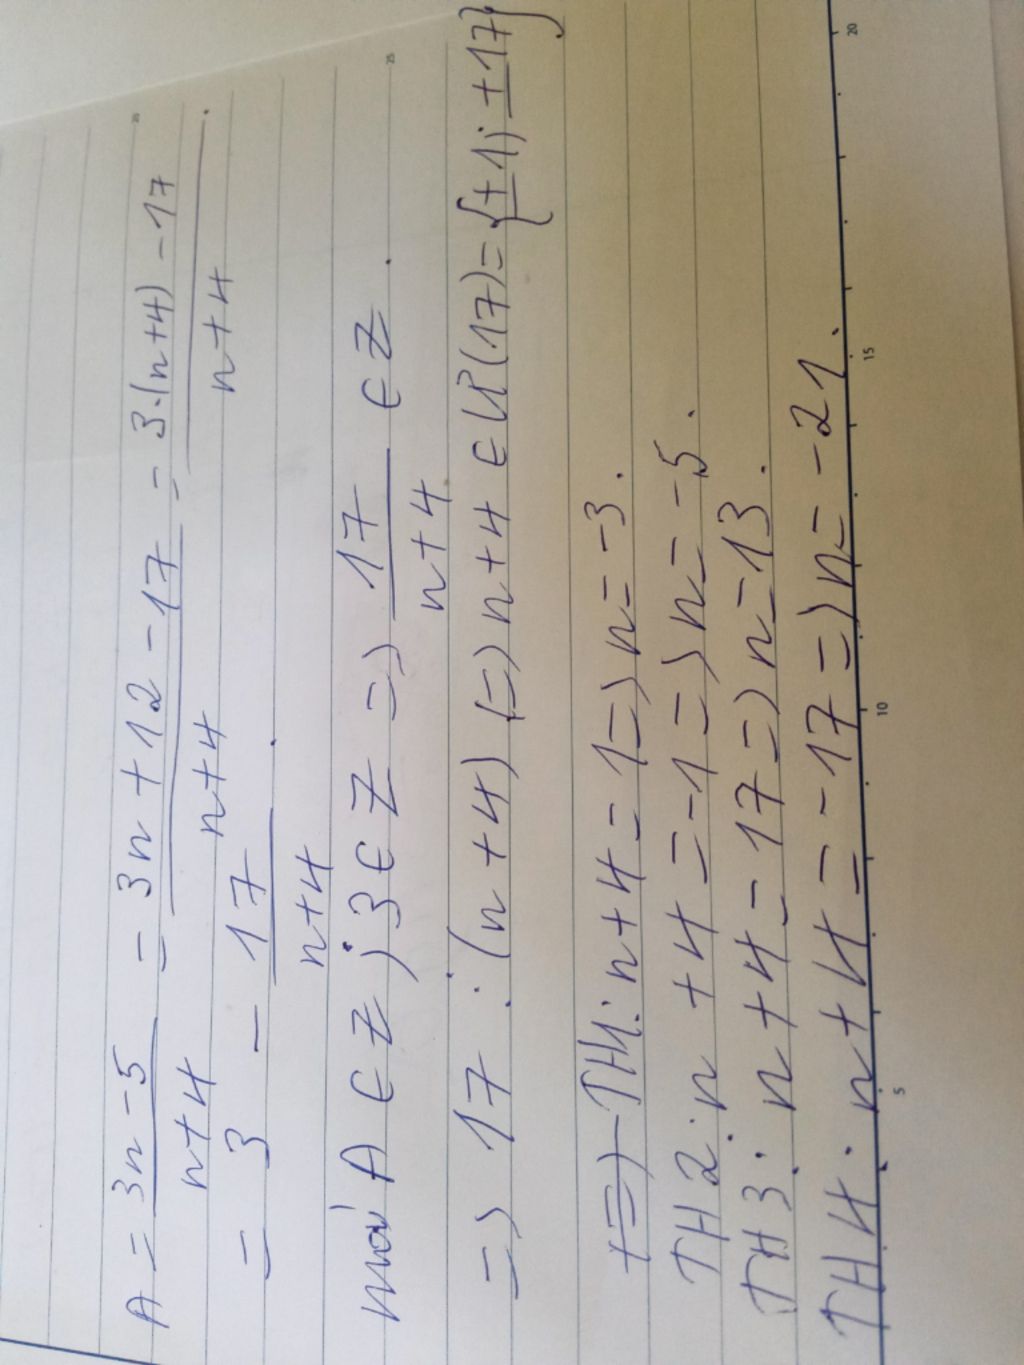 A = 3n-5/n+4 = 3n+12-17/n+4 = 3.(n+4)-17/n+4
= 3 - 17/n+4.
mà A ∈ Z ; 3 ∈ Z => 17/n+4 ∈ Z.
=> 17 ⋮ (n+4) (=) n+4 ∈ Ư(17) = {±1; ±17}
TH1: n+4=1=) n=-3.
TH2: n+4=-1=) n=-5.
TH3: n+4=17=) n=13.
TH4: n+4=-17=) n=-21.
5 10 15 20
25